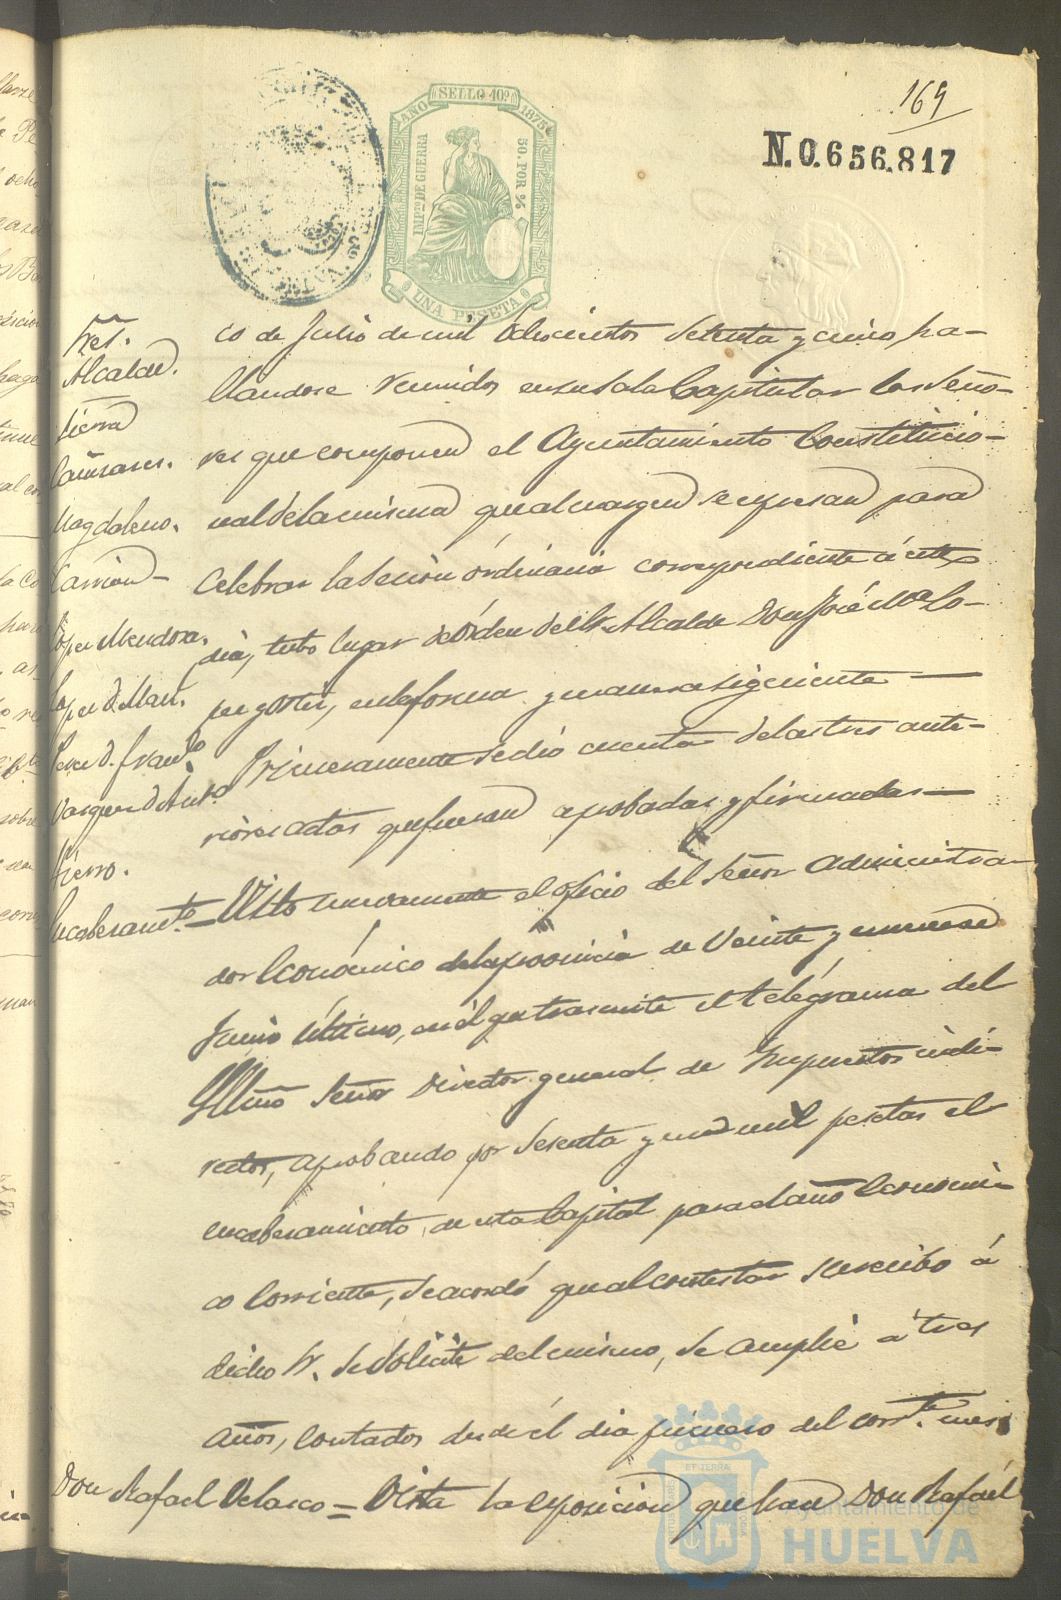 169
N.0.656.817
AÑO SELLO 10º 1875
IMPTO DE GUERRA
50. POR %
UNA PESETA
Sres.
Alcalde.
Sierra
Cañizares.
Magdaleno.
Carrion
Lopez Mendoza.
Lopez D. Man.
Perez D. Franco
Vazquez D. Anto
Fierro.
co de Julio de mil ochocientos setenta y cinco, ha-
llandose reunidos en su Sala Capitular los Seño-
res que componen el Ayuntamiento Constitucio-
nal de la misma que al margen se expresan para
celebrar la Sesion órdinaria correspondiente á este
dia, tubo lugar de órden del Sr. Alcalde Don José Ma Lo-
pez y en la forma y manera siguiente
Primeramente se dió cuenta de las tres ante-
riores actas que fueron aprobadas y firmadas
Encabezamto. = Visto nuevamente el oficio del Señor Administra-
dor Económico de la provincia de Veinte y nueve de
Junio último, en el que trascribe el telégrama del
Yllmo Señor Director general de Impuestos indi-
rectos, aprobando por sesenta y un mil pesetas el
encabezamiento de esta Capital para el año Económi-
co Corriente, se acordó que al contestar su recibo á
dicho Sr. se solicite del mismo, se amplie á tres
años, contados desde él dia primero del corrte. mes
Don Rafael Velasco = Vista la exposicion que hace Don Rafaél
Ayuntamiento de
HUELVA